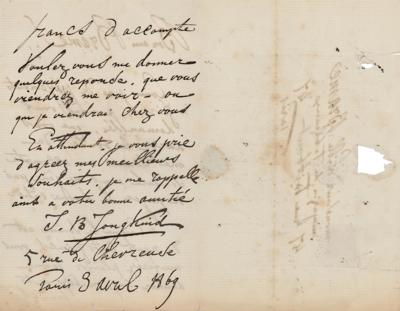 francs d'accompte
Voulez vous me donner
quelques reponse, que vous
viendrez me voir - ou
que je viendrai chez vous
En attendant, je vous prie
d'agreez mes meilleurs
souhaits, je me rappelle
a votre bonne amitié
J. B Jongkind
5 rue de Chevreuse
Paris 3 avril 1869